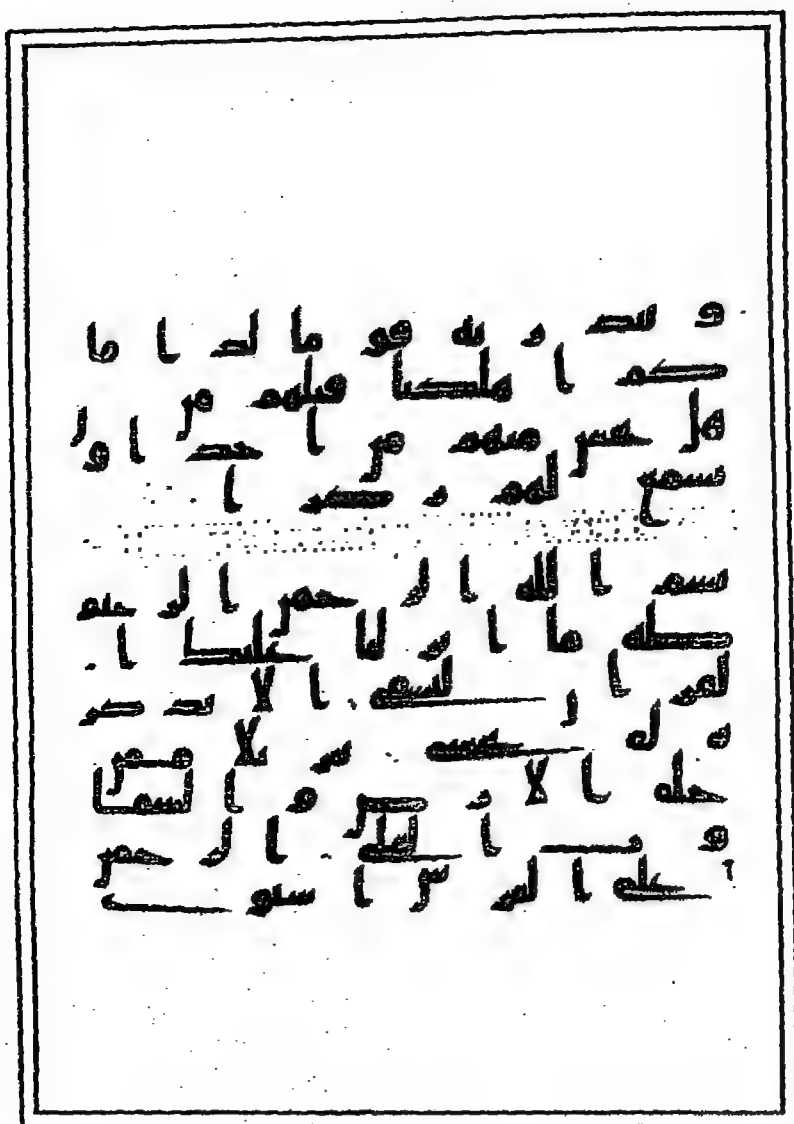 و تنذر به قوما لدا و
كم اهلكنا قبلهم من
قرن هل تحس منهم من احد او
تسمع لهم ركزا
بسم الله الرحمن الرحيم
طه ما انزلنا عليك ا
لقران لتشقى الا تذكر
ة لمن يخشى تنزيلا ممن
خلق الارض و السما
وت العلى الرحمن
على العرش استوى